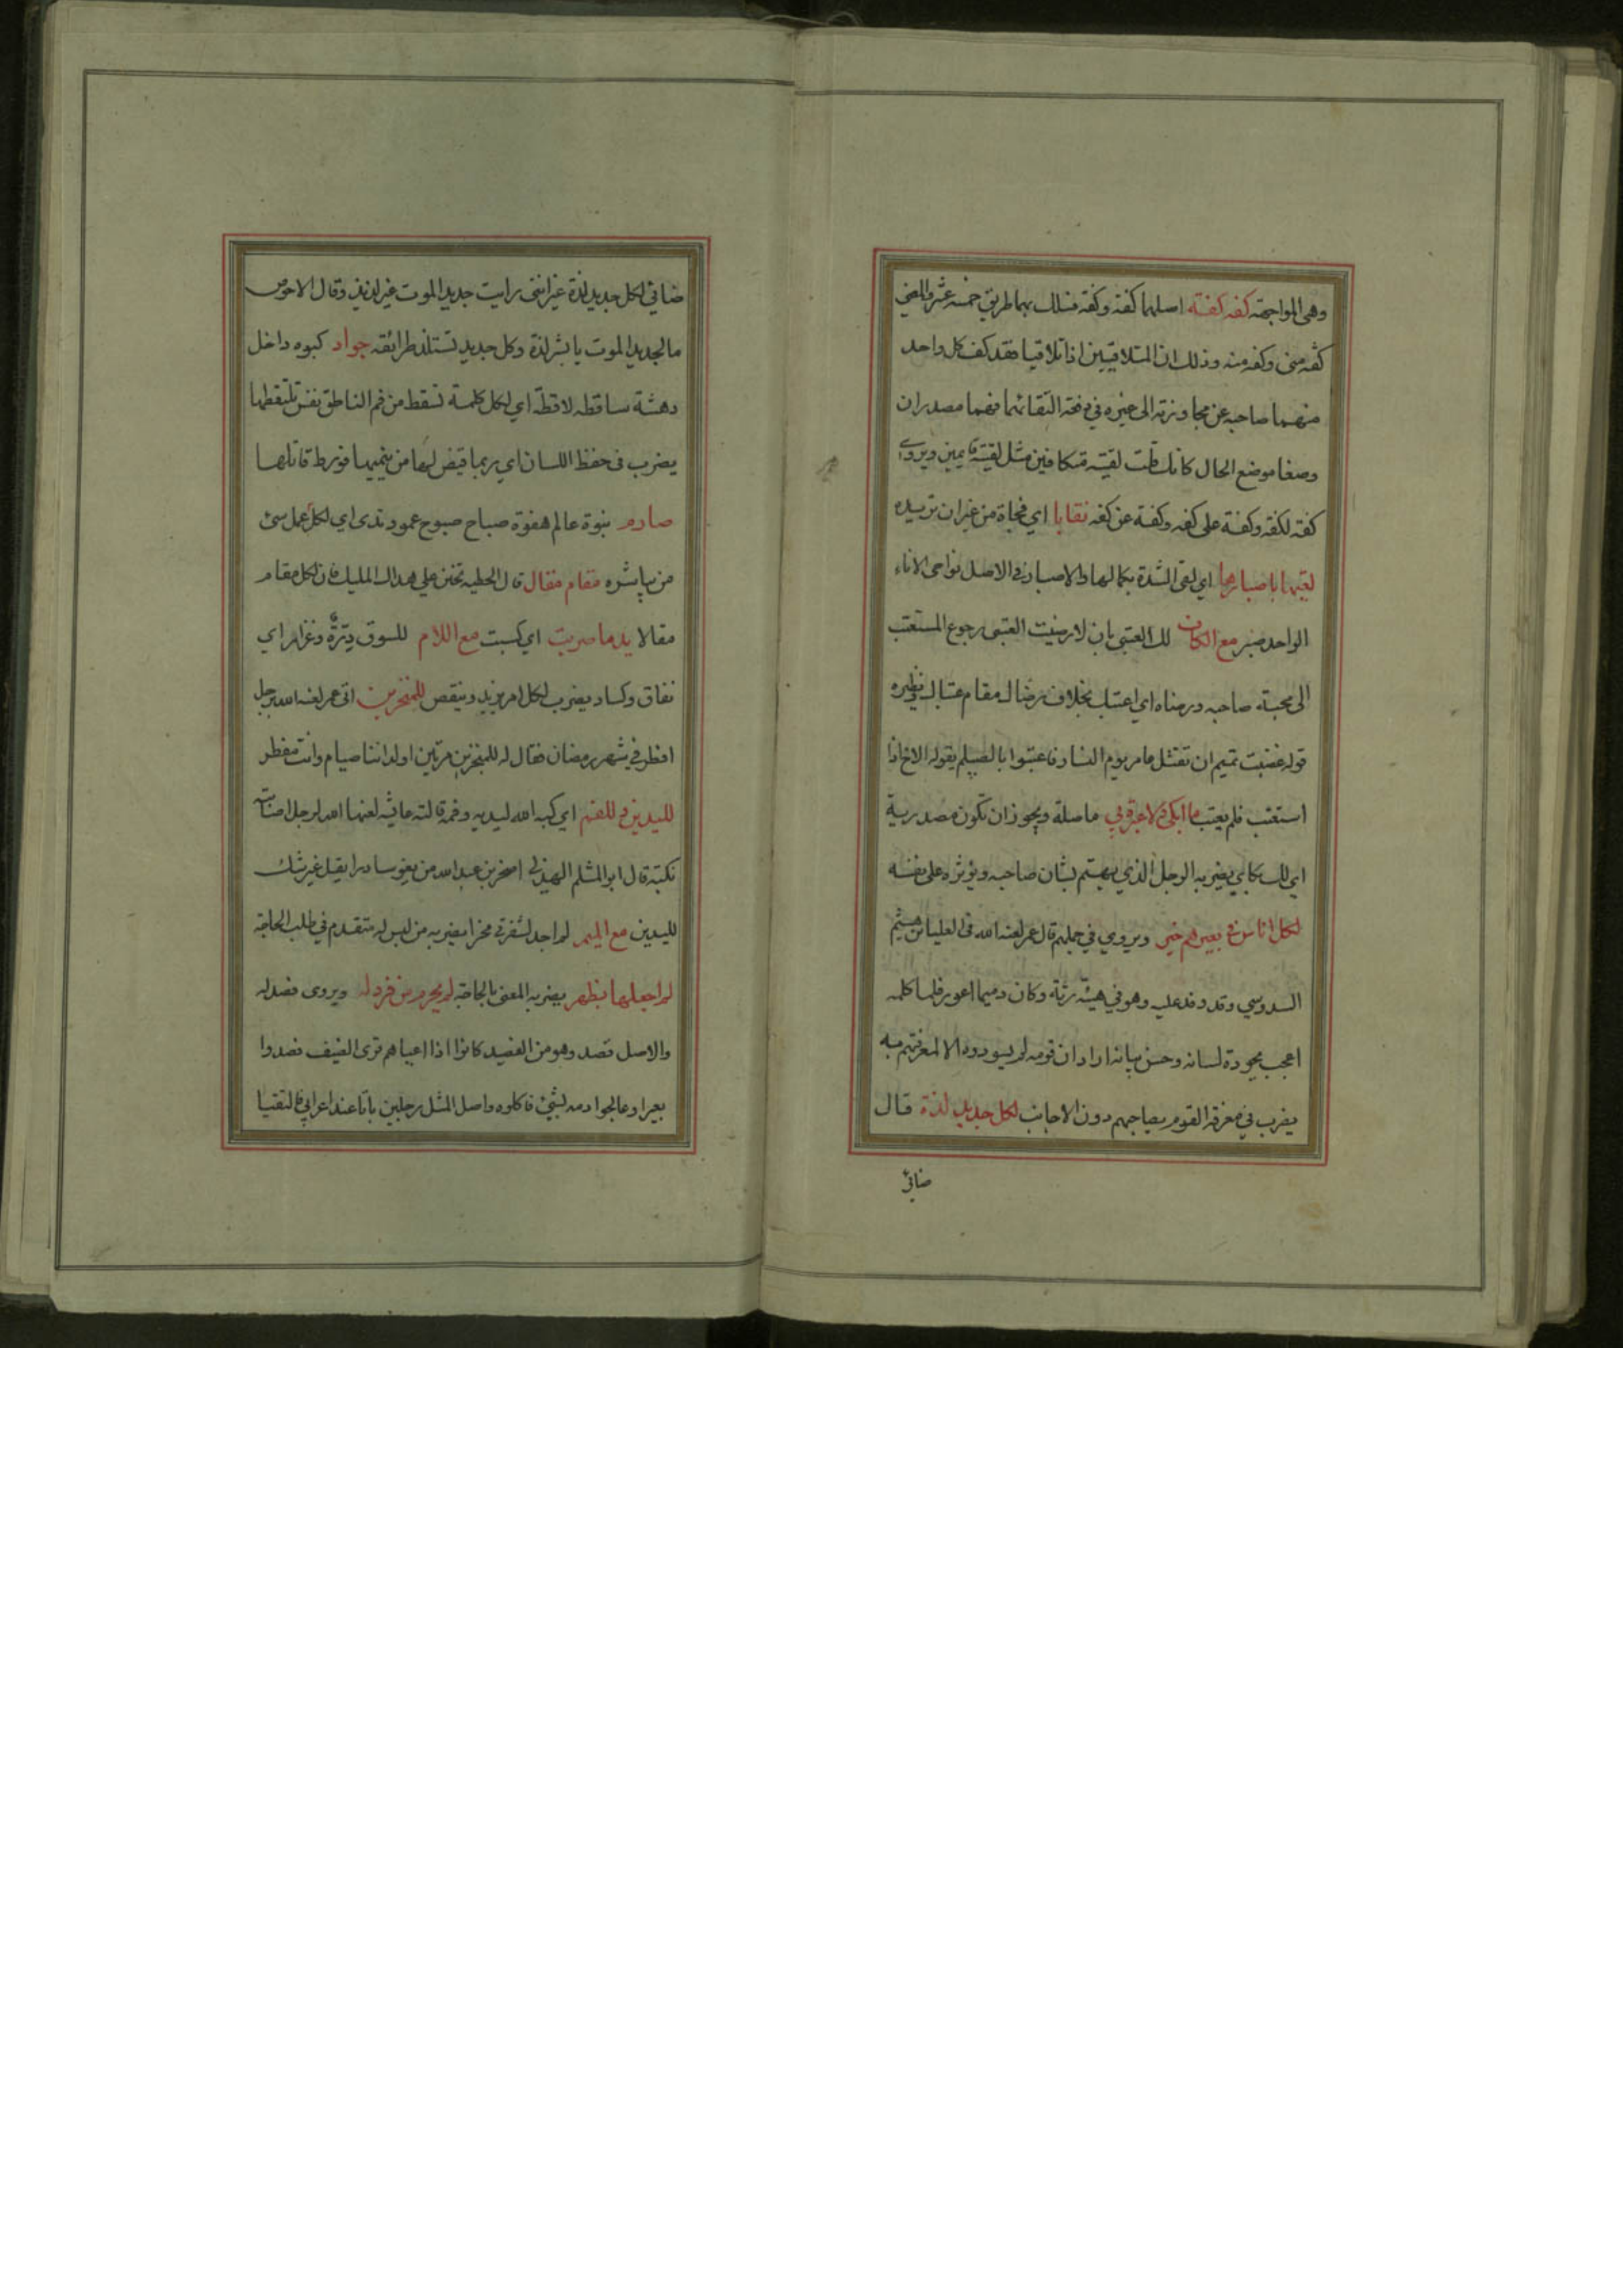 وهى المواجهة كفه كفته اصلهما كفة وكفة فسلك بهما طريق خمسه عشر والمعنى
كفه منى وكفه منه وذلك ان المتلاقيين اذا تلاقيا فقد كف كل واحد
منهما صاحبه عن مجاوزته الى غيره فى دفعة التقائهما فهما مصدران
وضعا موضع الحال كانك قلت لقيته متكافين مثل لقيته قايمين ويروى
كفة لكفة وكفة على كفه وكفة عن كفه نقابا اي فجاة من غير ان تريده
لقيها باصبارها اي لقى الشدة بكمالها والاصبار فى الاصل نواحى الاناء
الواحد صبر مع الكاف لك العتبى بان لا رضيت العتبى رجوع المستعتب
الى محبة صاحبه ورضاه اي اعتبك بخلاف رضاك مقام عتابك ونظيره
قوله غضبت تميم ان تقتل عامر يوم النسار فاعتبوا بالصيلم يقوله الاخ اذا
استعتب فلم يعتب ما ابكى ولا عبرة بي ما صلة ويجوز ان تكون مصدرية
اي لك بكايى يضرب الرجل الذي يهتم بشان صاحبه ويؤثره على نفسه
لكل اناس فى بعيرهم خبر ويروى في جملهم قال عمر لعنه الله فى العلباء بن هيثم
السدوسي وقد وفد عليه وهو في هيئة رثة وكان دميما اعور فلما كلمه
اعجب بجودة لسانه وحسن بيانه اراد ان قومه لم يسودوه الا لمعرفتهم به
يضرب في معرفة القوم بصاحبهم دون الاجانب لكل جديد لذة قال
ضابئ
ضابى لكل جديد لذة غير اننى رايت جديد الموت غير لذيذ وقال الاحوص
ما لجديد الموت يا بشر لذة وكل جديد تستلذ طرائقه جواد كبوه داخل
دهشة ساقطه لاقطة اي لكل كلمة تسقط من فم الناطق نفس تلتقطها
يضرب فى حفظ اللسان اي ربما قيض لها من ينميها فورط قائلها
صارم نبوة عالم هفوة صباح صبوح عمود ندى اي لكل عمل سئ
من يباشره مقام مقال قال الحطيه تحنن علي هداك المليك فان لكل مقام
مقالا يد ما صربت اي كسبت مع اللام للسوق درة وغرار اي
نفاق وكساد يضرب لكل امر يزيد وينقص للمنخرين اتى عمر لعنه الله برجل
افطر فى شهر رمضان فقال له للمنخزين مرتين اولداننا صيام وانت مفطر
لليدين وللفم اي كبه الله ليديه وفمه قالته عايشه لعنها الله لرجل اصابته
نكبة قال ابو المثلم الهذلى اصخر بن عبد الله من يغو سادرا يقل غير شك
لليدين مع الميم لم اجد لشفرتى محزا يضرب من ليس له متقدم في طلب الحاجة
لم اجعلها بظهر يضربه المعنى بالحاجة لم يحرم من فزد له ويروى فصد له
والاصل فصد وهو من الفصيد كانوا اذا اعياهم قرى الضيف فصدوا
بعيرا وعالجوا دمه بشئ فاكلوه واصل المثل رجلين باتا عند اعرابي فالتقيا